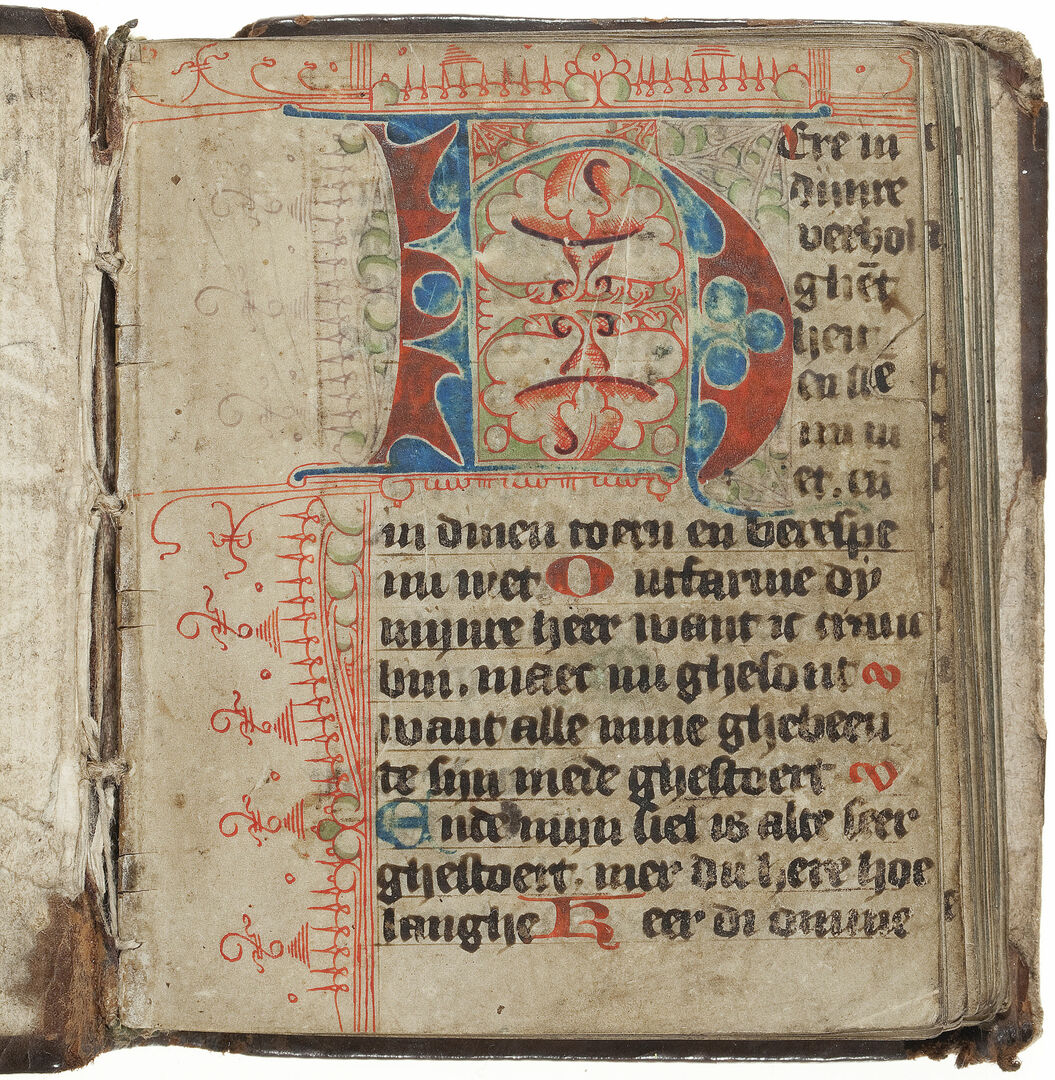 HEre in
diinre
verbol
ghēt
heit
en wē
mi ni
et. en
in dinen toern en berespe
mi niet O ntfarme dij
mijnre heer want ic cranc
bin. maec mi ghesont
want alle mine ghebeen
te sijn mede ghestoert
Ende mijn siel is alte seer
ghestoert. mer du here hoe
langhe K eer di omme